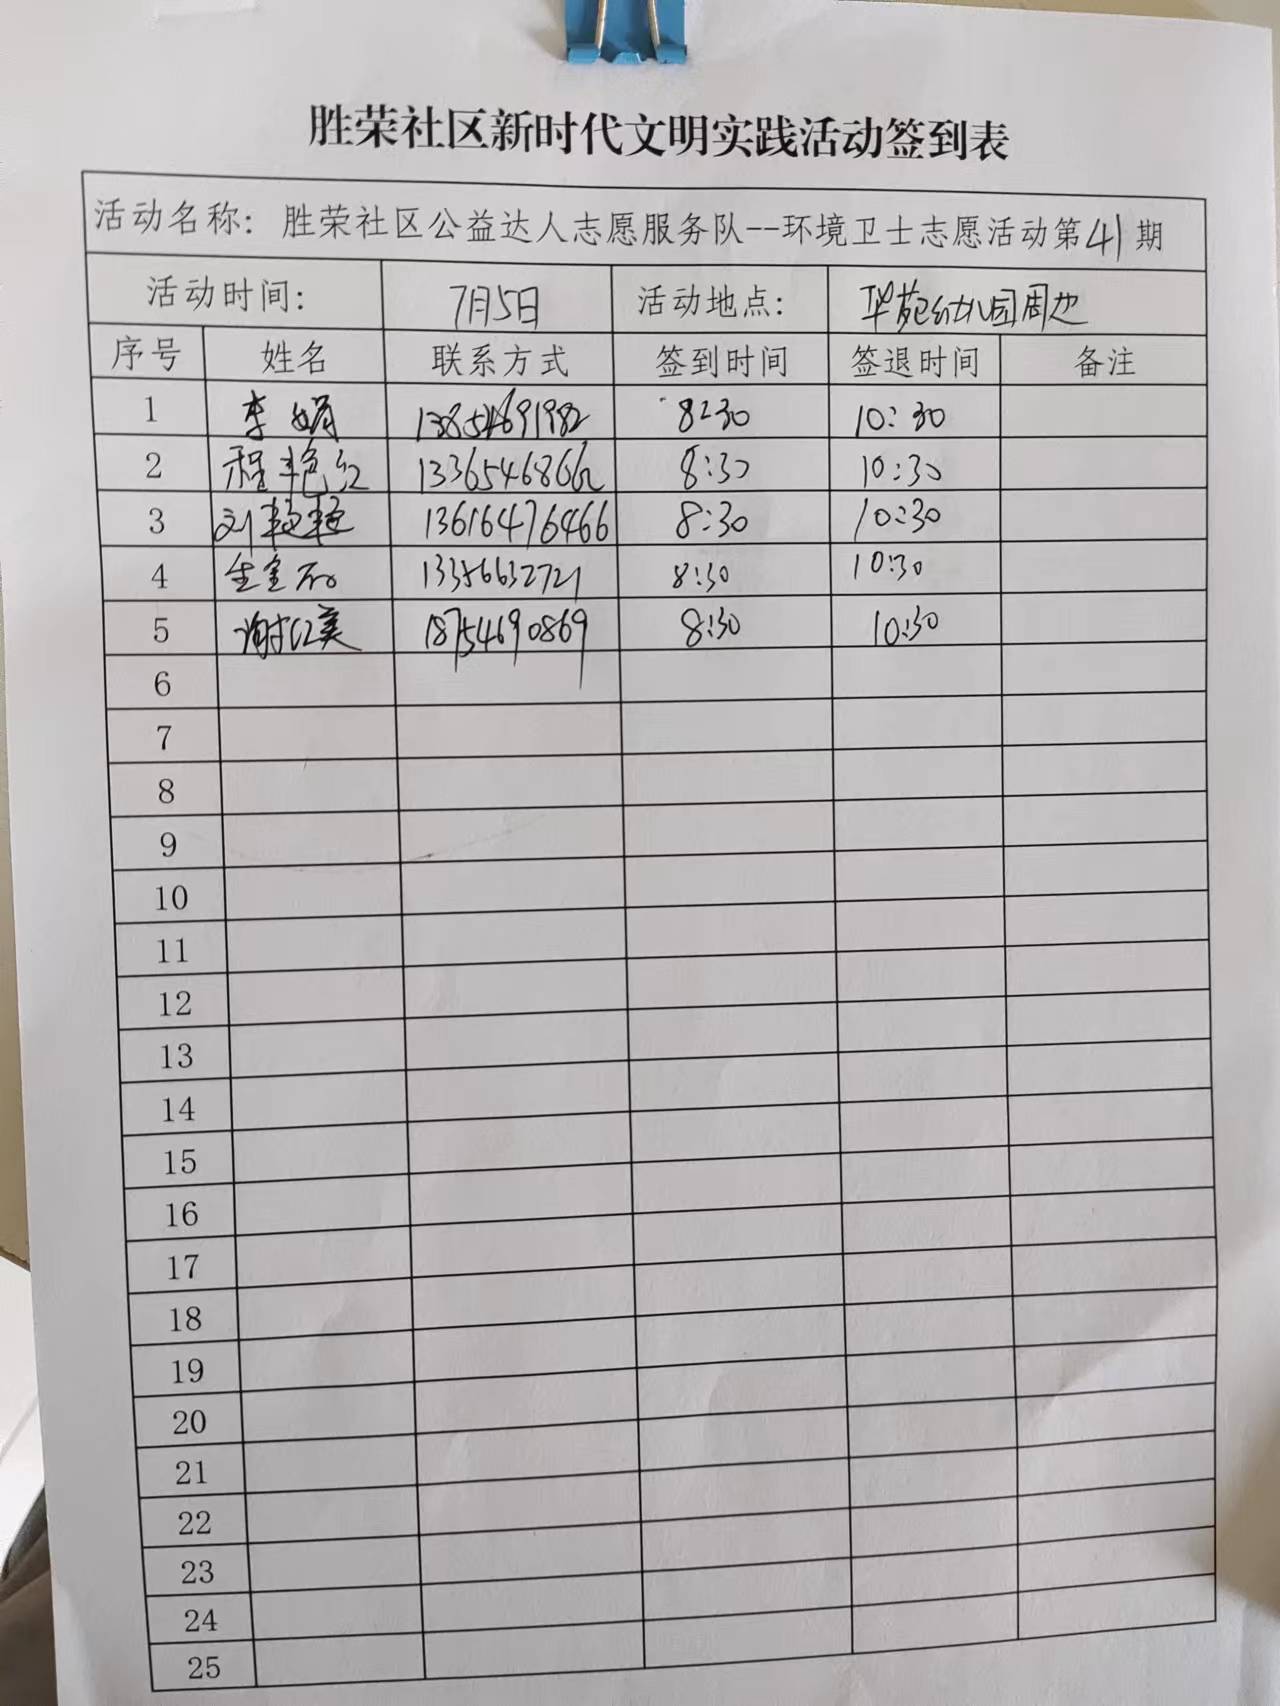 胜荣社区新时代文明实践活动签到表
活动名称：胜荣社区公益达人志愿服务队--环境卫士志愿活动第41期
活动时间： 7月5日 活动地点： 华苑幼儿园周边
序号 姓名 联系方式 签到时间 签退时间 备注
1 李娟 8:30 10:30
2 程艳红 8:30 10:30
3 刘艳艳 13616476466 8:30 10:30
4 8:30 10:30
5 谢红英 18754690869 8:30 10:30
6
7
8
9
10
11
12
13
14
15
16
17
18
19
20
21
22
23
24
25